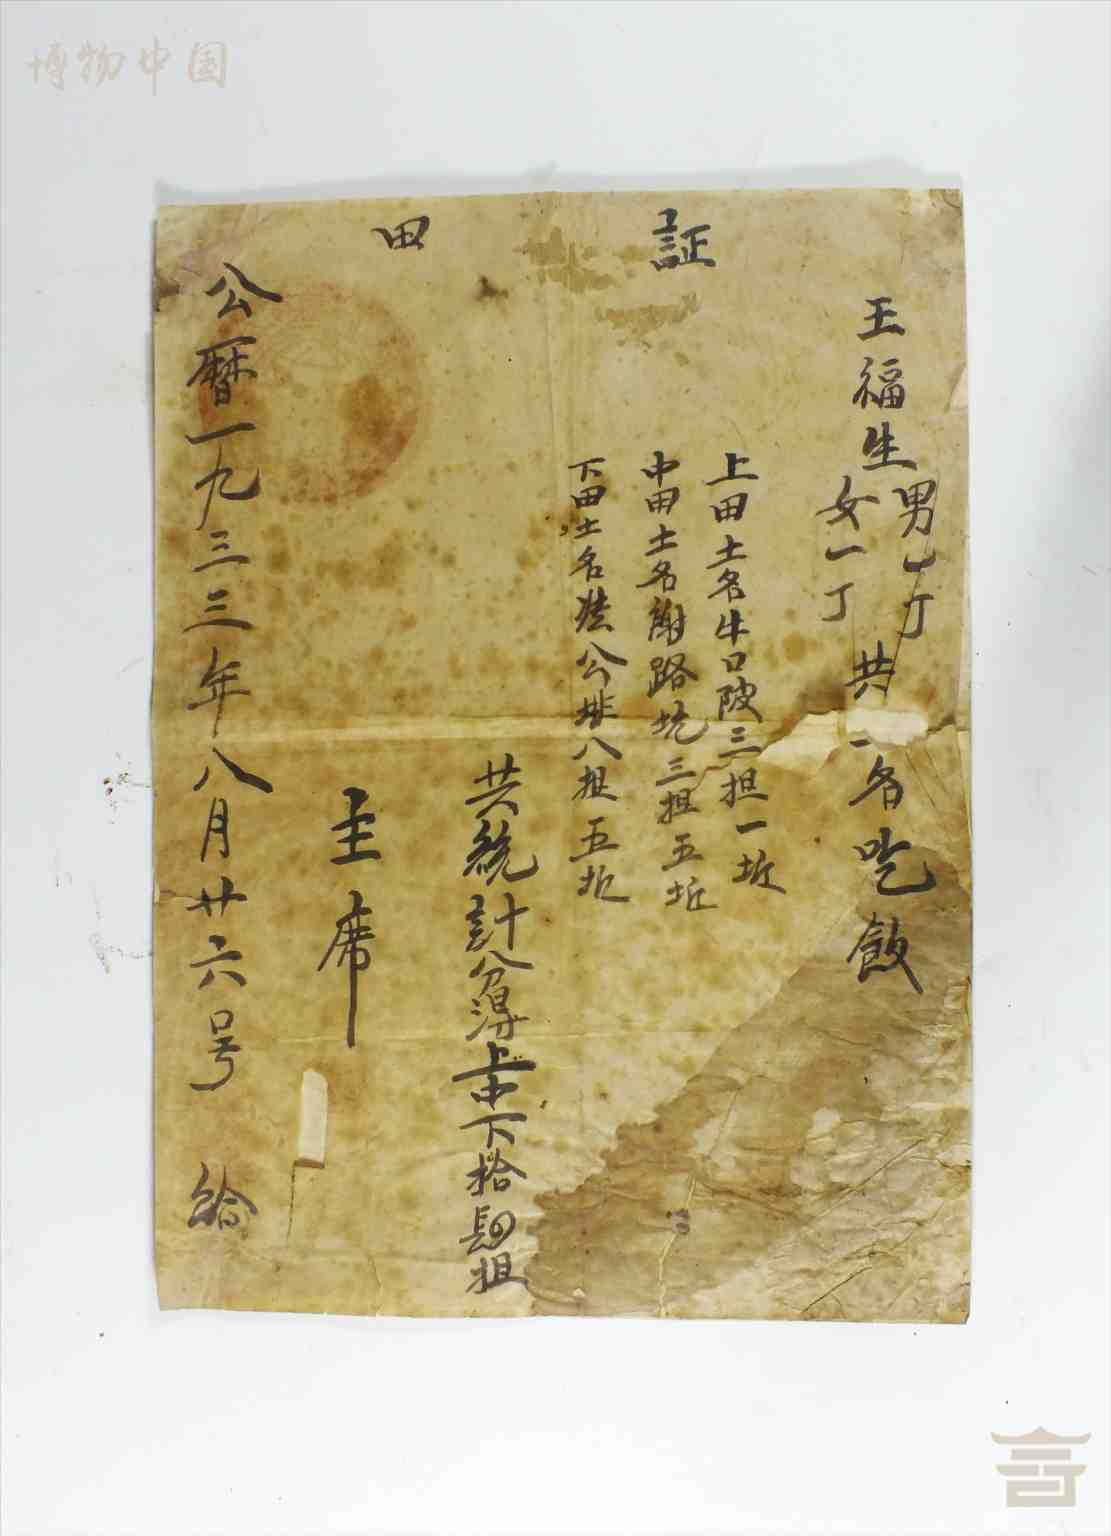 博物中国
証 田
王福生
男一丁
女一丁
共 一名吃飯
上田土名牛口陂三担一坵
中田土名謝路坑三担五坵
下田土名 公排八担五坵
共統計分淂上中下拾肆担
主席
公曆一九三三年八月廿六号 給